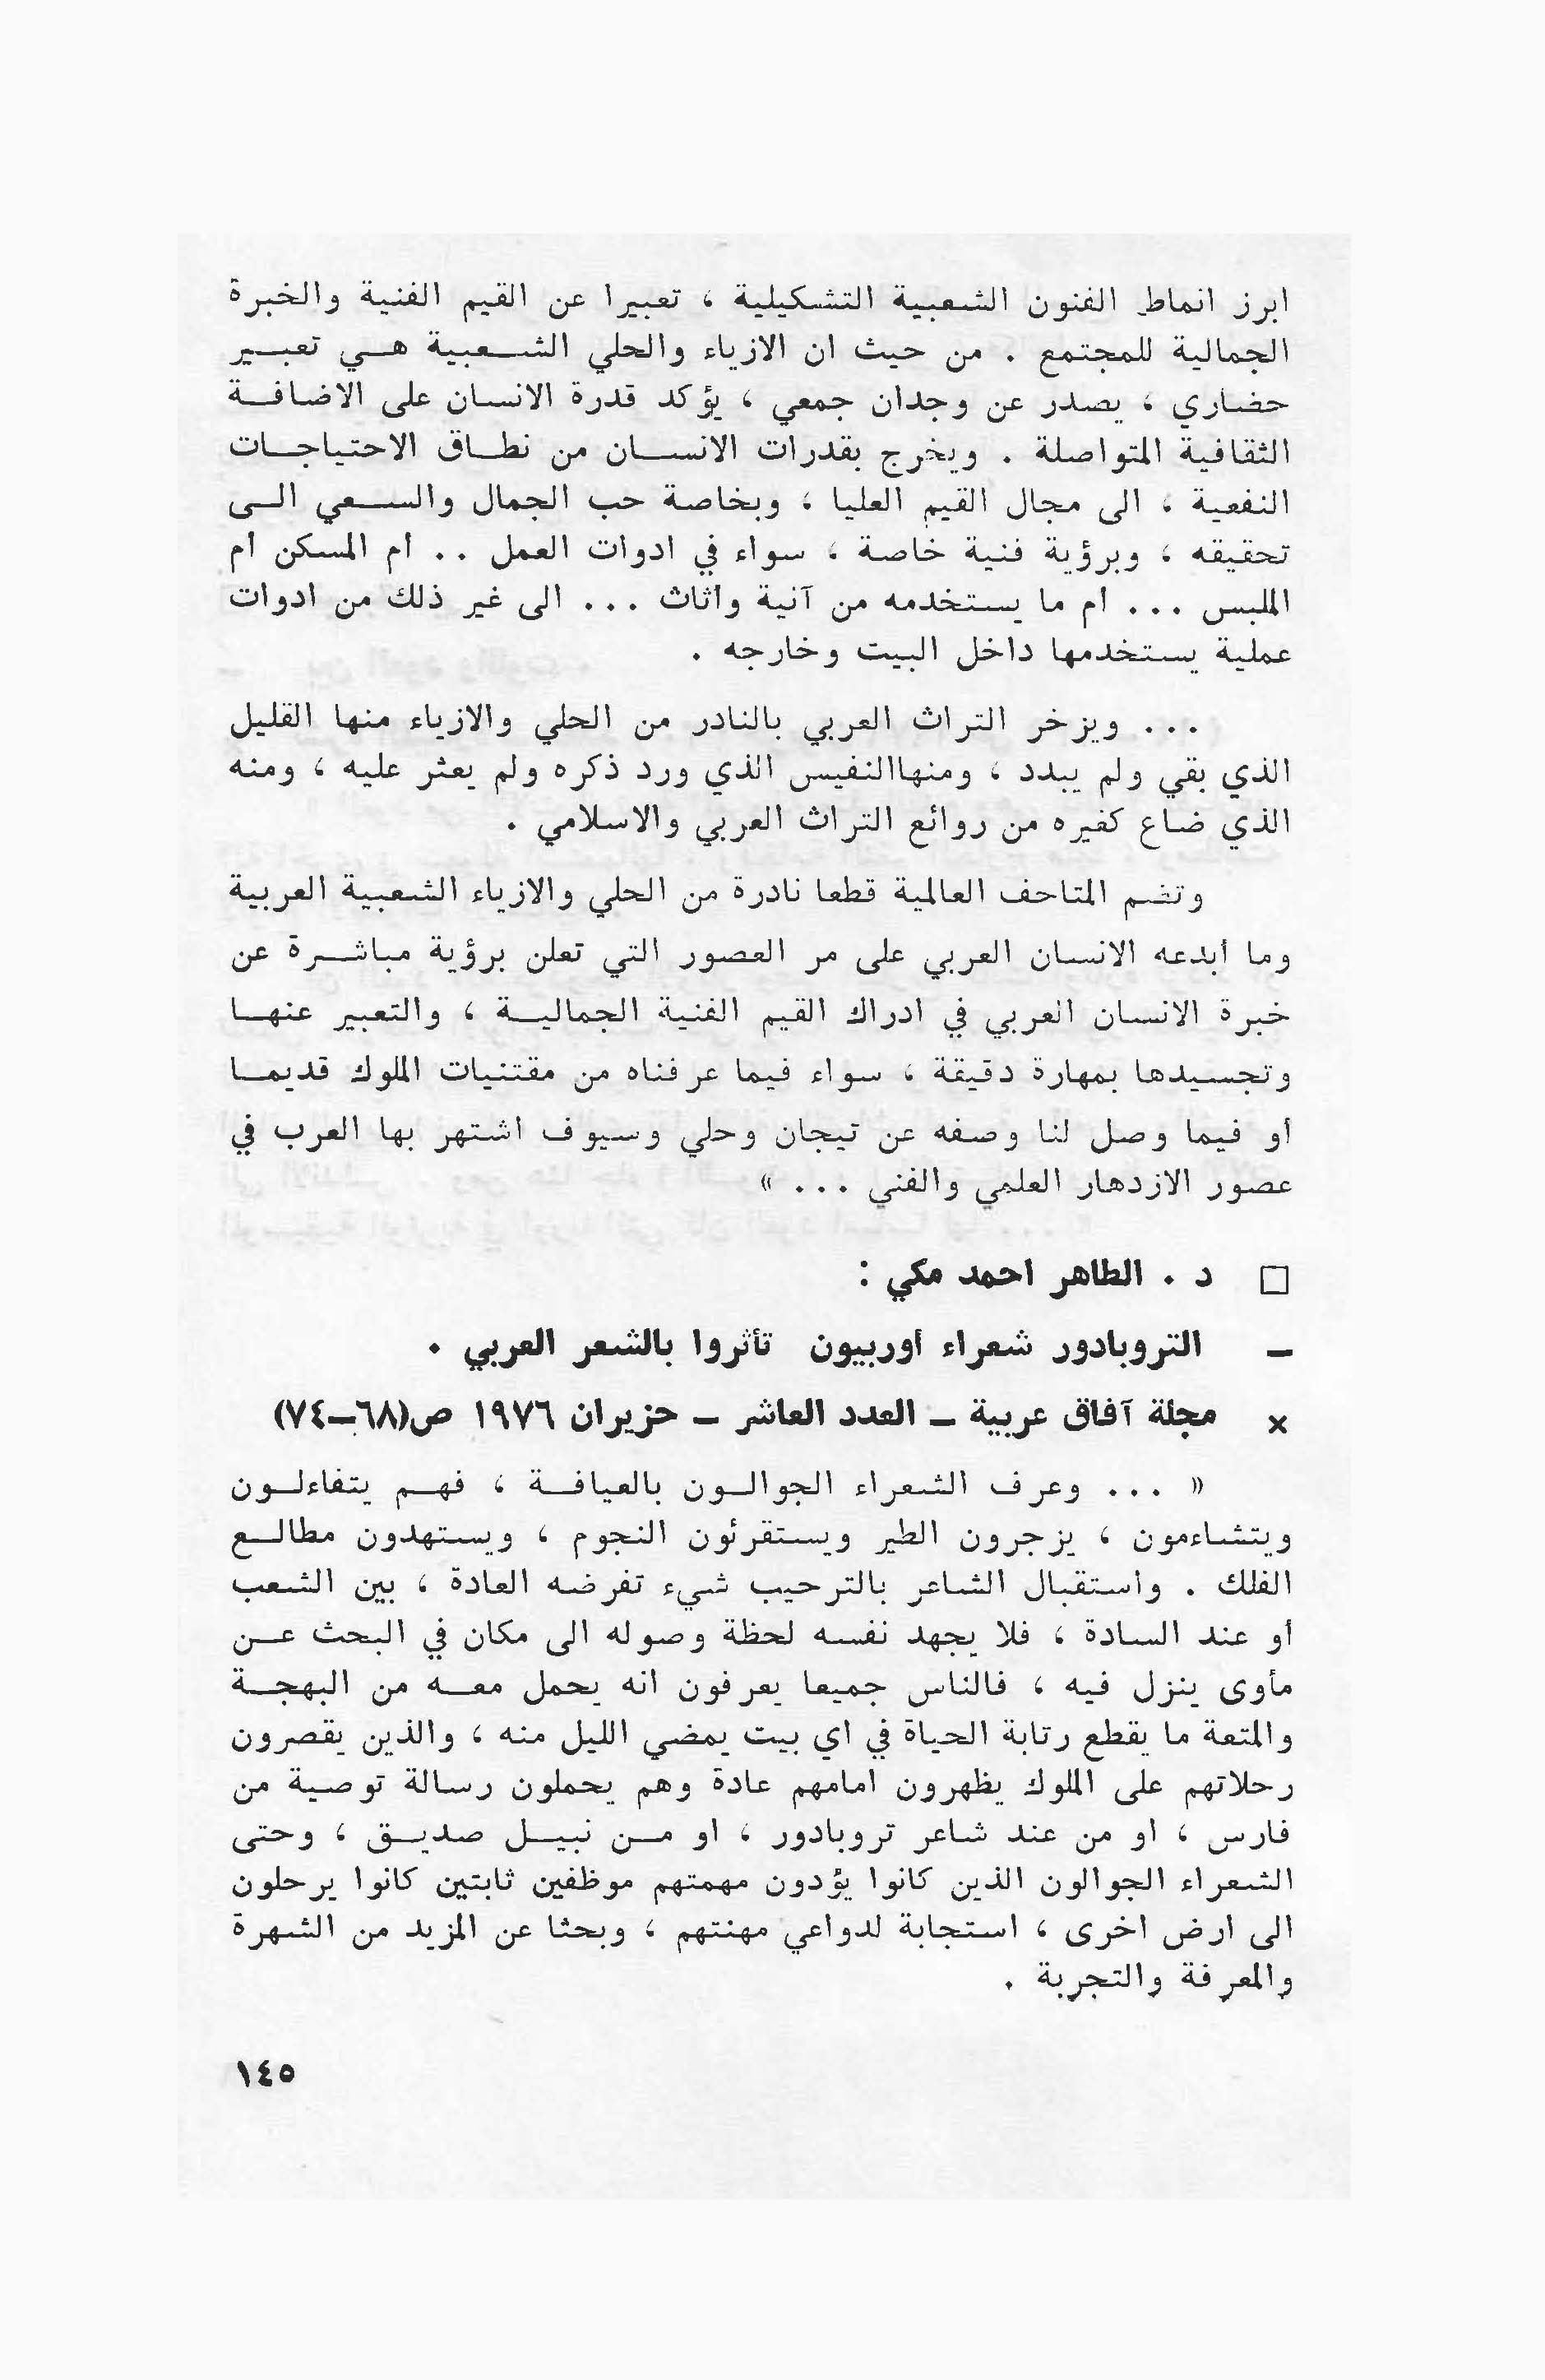 ابرز انماط الفنون الشعبية التشكيلية ، تعبيرا عن القيم الفنية والخبرة
الجمالية للمجتمع . من حيث ان الازياء والحلي الشعبية هي تعبير
حضاري ، يصدر عن وجدان جمعي ، يؤكد قدرة الانسان على الاضافة
الثقافية المتواصلة . ويخرج بقدرات الانسان من نطاق الاحتياجات
النفعية ، الى مجال القيم العليا ، وبخاصة حب الجمال والسعي الى
تحقيقه ، وبرؤية فنية خاصة ، سواء في ادوات العمل .. أم المسكن أم
الملبس ... أم ما يستخدمه من آنية وأثاث ... الى غير ذلك من ادوات
عملية يستخدمها داخل البيت وخارجه .
... ويزخر التراث العربي بالنادر من الحلي والازياء منها القليل
الذي بقي ولم يبدد ، ومنهاالنفيس الذي ورد ذكره ولم يعثر عليه ، ومنه
الذي ضاع كغيره من روائع التراث العربي والاسلامي .
وتضم المتاحف العالمية قطعا نادرة من الحلي والازياء الشعبية العربية
وما أبدعه الانسان العربي على مر العصور التي تعلن برؤية مباشرة عن
خبرة الانسان العربي في ادراك القيم الفنية الجمالية ، والتعبير عنها
وتجسيدها بمهارة دقيقة ، سواء فيما عرفناه من مقتنيات الملوك قديما
أو فيما وصل لنا وصفه عن تيجان وحلي وسيوف اشتهر بها العرب في
عصور الازدهار العلمي والفني ... »
□ د . الطاهر احمد مكي :
– التروبادور شعراء أوربيون تأثروا بالشعر العربي .
× مجلة آفاق عربية – العدد العاشر – حزيران ١٩٧٦ ص(٦٨–٧٤)
« ... وعرف الشعراء الجوالون بالعيافة ، فهم يتفاءلون
ويتشاءمون ، يزجرون الطير ويستقرئون النجوم ، ويستهدون مطالع
الفلك . واستقبال الشاعر بالترحيب شيء تفرضه العادة ، بين الشعب
أو عند السادة ، فلا يجهد نفسه لحظة وصوله الى مكان في البحث عن
مأوى ينزل فيه ، فالناس جميعا يعرفون انه يحمل معه من البهجة
والمتعة ما يقطع رتابة الحياة في اي بيت يمضي الليل منه ، والذين يقصرون
رحلاتهم على الملوك يظهرون امامهم عادة وهم يحملون رسالة توصية من
فارس ، او من عند شاعر تروبادور ، او من نبيل صديق ، وحتى
الشعراء الجوالون الذين كانوا يؤدون مهمتهم موظفين ثابتين كانوا يرحلون
الى ارض اخرى ، استجابة لدواعي مهنتهم ، وبحثا عن المزيد من الشهرة
والمعرفة والتجربة .
١٤٥